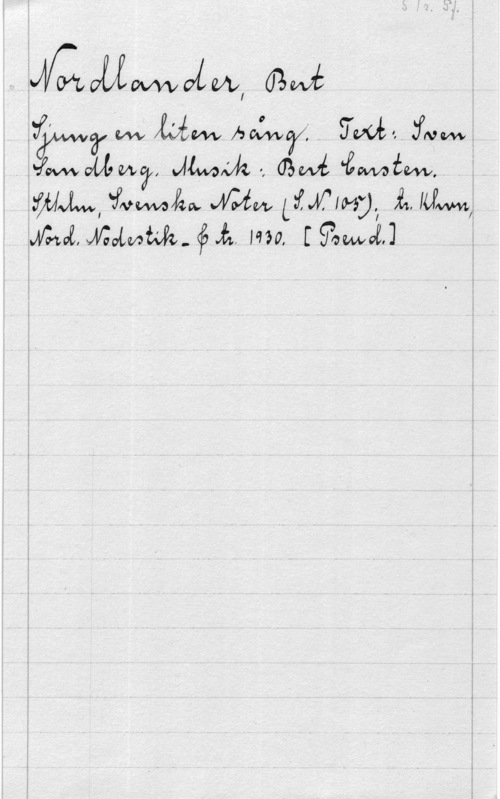 S /2. Sf.
Nordlander, Bert
Sjung en liten sång. Text: Sven
Sandberg. Musik: Bert Carsten.
Sthlm, Svenska Noter (S.N. 105); tr. Khvn,
Nord. Nodestik- & tr. 1930. [Pseud.]